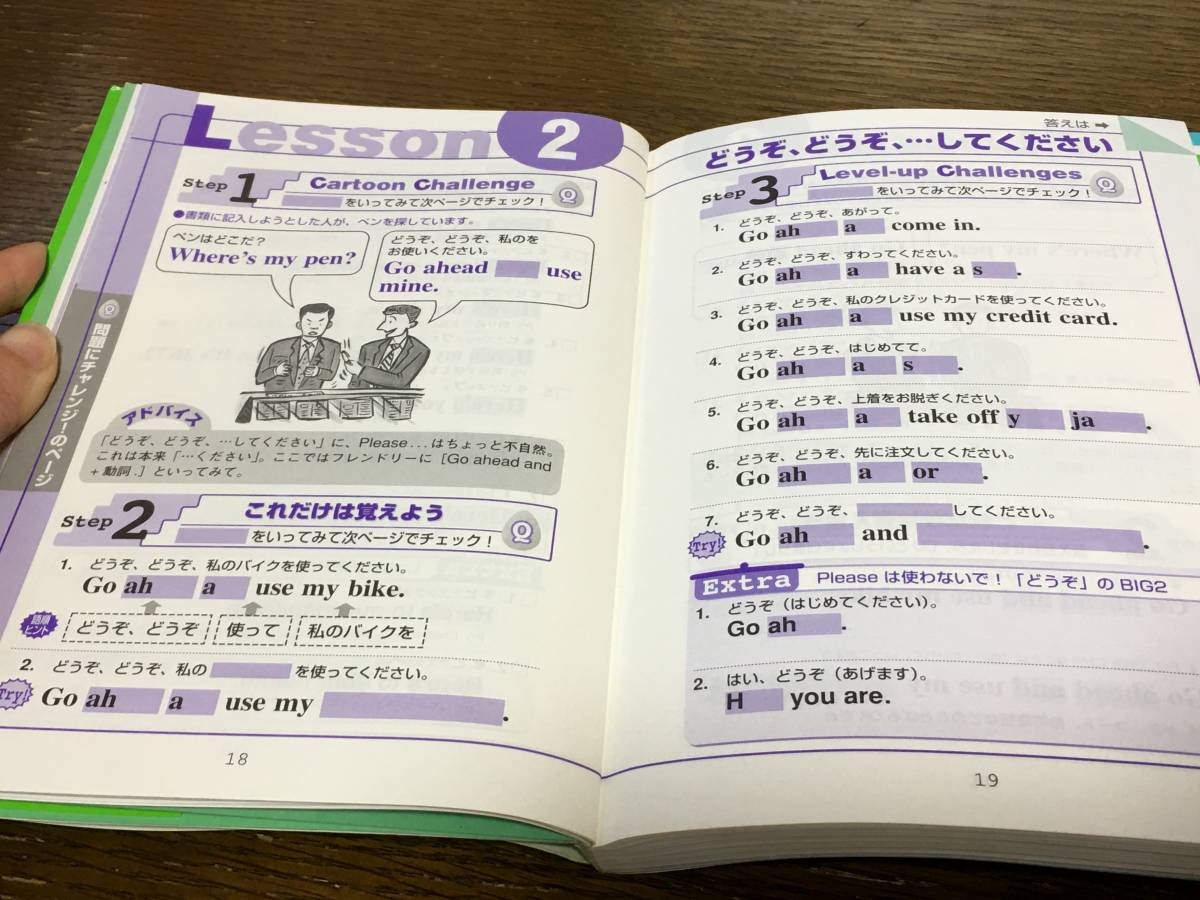 Lesson 2
Step 1 Cartoon Challenge
をいってみて次ページでチェック！
●書類に記入しようとした人が、ペンを探しています。
ペンはどこだ？
Where's my pen?
どうぞ、どうぞ、私のを
お使いください。
Go ahead use
mine.
アドバイス
「どうぞ、どうぞ、…してください」に、Please...はちょっと不自然。
これは本来「…ください」。ここではフレンドリーに［Go ahead and
+ 動詞.］といってみて。
Step 2 これだけは覚えよう
をいってみて次ページでチェック！
1. どうぞ、どうぞ、私のバイクを使ってください。
Go ah a use my bike.
語順ヒント どうぞ、どうぞ 使って 私のバイクを
2. どうぞ、どうぞ、私の を使ってください。
Try! Go ah a use my .
18
問題にチャレンジ！のページ
答えは ➡
どうぞ、どうぞ、…してください
Step 3 Level-up Challenges
をいってみて次ページでチェック！
1. どうぞ、どうぞ、あがって。
Go ah a come in.
2. どうぞ、どうぞ、すわってください。
Go ah a have a s .
3. どうぞ、どうぞ、私のクレジットカードを使ってください。
Go ah a use my credit card.
4. どうぞ、どうぞ、はじめてて。
Go ah a s .
5. どうぞ、どうぞ、上着をお脱ぎください。
Go ah a take off y ja .
6. どうぞ、どうぞ、先に注文してください。
Go ah a or .
7. どうぞ、どうぞ、 してください。
Try! Go ah and .
Extra Pleaseは使わないで！「どうぞ」のBIG2
1. どうぞ（はじめてください）。
Go ah .
2. はい、どうぞ（あげます）。
H you are.
19